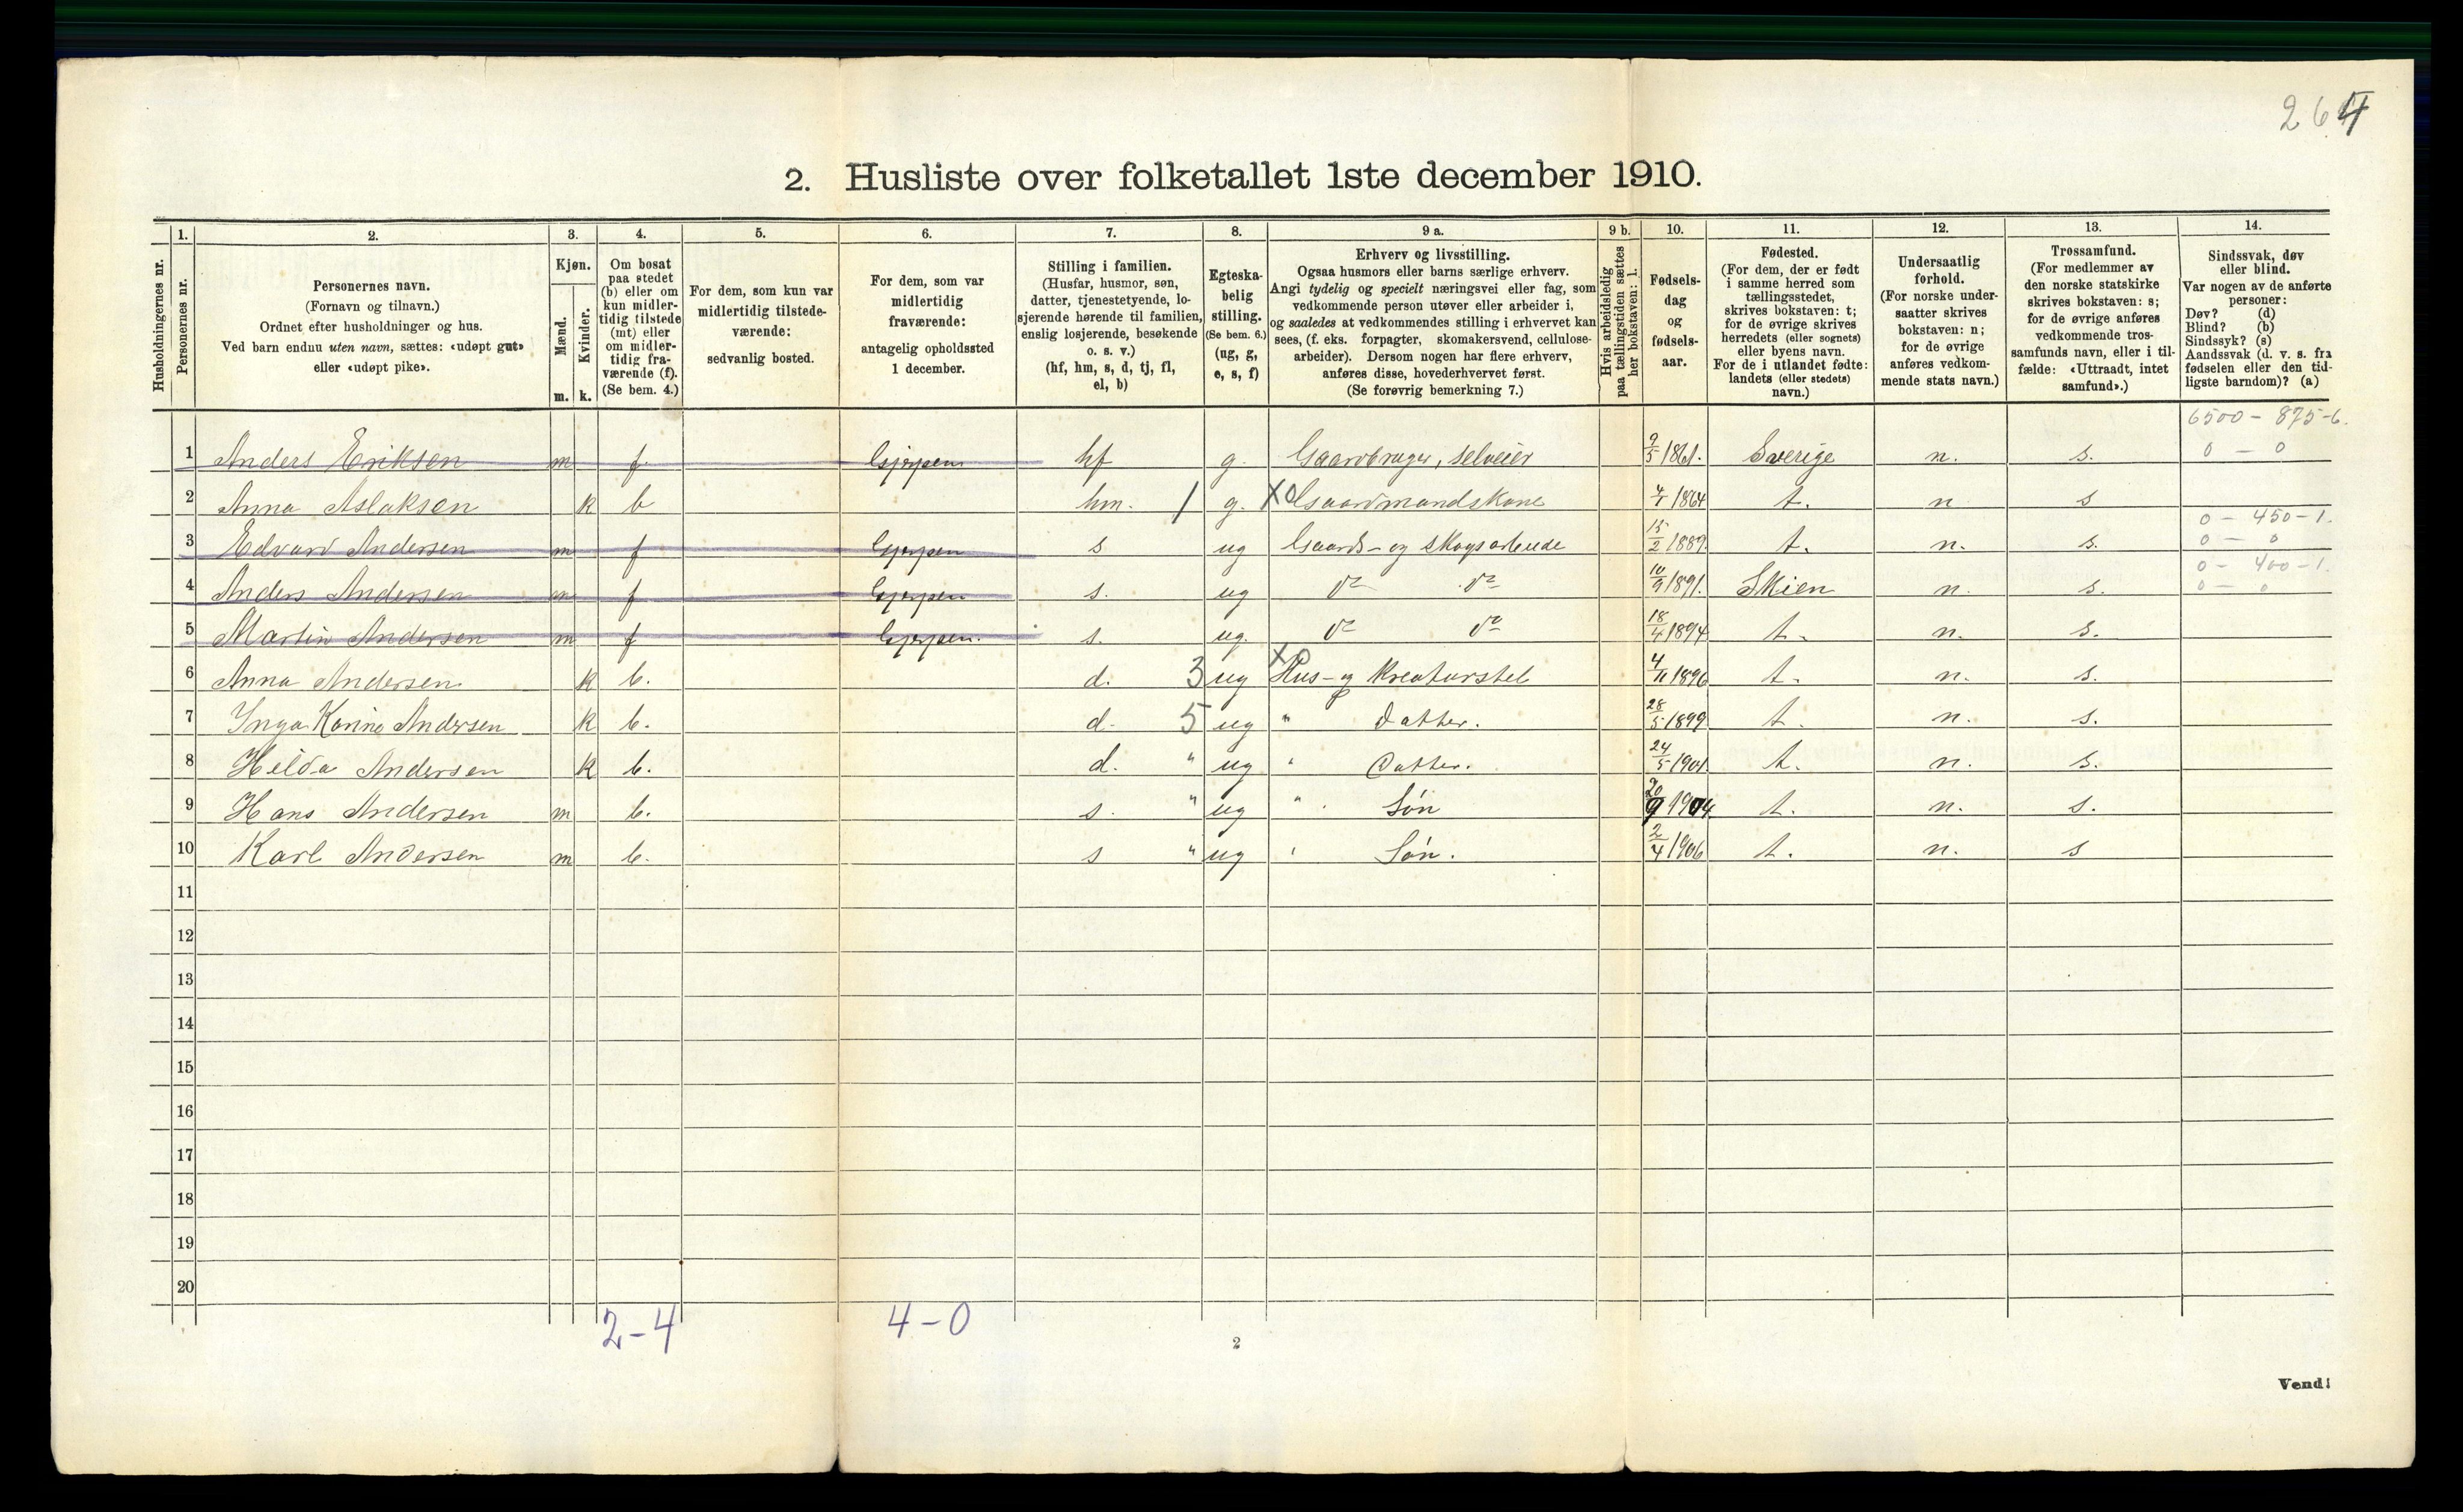 264
2. Husliste over folketallet 1ste december 1910.
Husholdningernes nr.
1. Personernes nr.
2. Personernes navn. (Fornavn og tilnavn.) Ordnet efter husholdninger og hus. Ved barn endnu uten navn, sættes: «udøpt gut» eller «udøpt pike».
3. Kjøn. Mænd. m. Kvinder. k.
4. Om bosat paa stedet (b) eller om kun midlertidig tilstede (mt) eller om midlertidig fraværende (f). (Se bem. 4.)
5. For dem, som kun var midlertidig tilstedeværende: sedvanlig bosted.
6. For dem, som var midlertidig fraværende: antagelig opholdssted 1 december.
7. Stilling i familien. (Husfar, husmor, søn, datter, tjenestetyende, losjerende hørende til familien, enslig losjerende, besøkende o. s. v.) (hf, hm, s, d, tj, fl, el, b)
8. Egteskabelig stilling. (Se bem. 6.) (ug, g, e, s, f)
9 a. Erhverv og livsstilling. Ogsaa husmors eller barns særlige erhverv. Angi tydelig og specielt næringsvei eller fag, som vedkommende person utøver eller arbeider i, og saaledes at vedkommendes stilling i erhvervet kan sees, (f. eks. forpagter, skomakersvend, cellulosearbeider). Dersom nogen har flere erhverv, anføres disse, hovederhvervet først. (Se forøvrig bemerkning 7.)
9 b. Hvis arbeidsledig paa tællingstiden sættes her bokstaven: l.
10. Fødselsdag og fødselsaar.
11. Fødested. (For dem, der er født i samme herred som tællingsstedet, skrives bokstaven: t; for de øvrige skrives herredets (eller sognets) eller byens navn. For de i utlandet fødte: landets (eller stedets) navn.)
12. Undersaatlig forhold. (For norske undersaatter skrives bokstaven: n; for de øvrige anføres vedkommende stats navn.)
13. Trossamfund. (For medlemmer av den norske statskirke skrives bokstaven: s; for de øvrige anføres vedkommende trossamfunds navn, eller i tilfælde: «Uttraadt, intet samfund».)
14. Sindssvak, døv eller blind. Var nogen av de anførte personer: Døv? (d) Blind? (b) Sindssyk? (s) Aandssvak (d. v. s. fra fødselen eller den tidligste barndom)? (a)
6500 - 875-6.
1 Anders Eriksen m f Gjerpen hf g. Gaardbruger, selveier 9/5 1861. Sverige n. s. 0 - 0
2 Anna Aslaksen k b hm. 1 g. X0 Gaardmandskone 4/1 1864 t. n s
0 - 450-1.
3 Edvard Andersen m f Gjerpen s ug Gaards- og skogsarbeide 15/2 1889. t. n. s. 0 - 0
0 - 400-1.
4 Anders Andersen m f Gjerpen s. ug do do 10/9 1891. Skien n. s. 0 - 0
5 Martin Andersen m f Gjerpen. s. ug. do do 18/4 1894 t. n. s.
6 Anna Andersen k b. d. 3 ug X0 Hus- og Kreaturstel 4/11 1896 t. n. s.
7 Inga Karine Andersen k b. d. 5 ug " datter. 28/5 1899 t. n. s.
8 Hilda Andersen k b. d. " ug " Datter. 24/5 1901. t. n. s.
9 Hans Andersen m b. s. " ug " Søn 20/9 1904. t. n. s.
10 Karl Andersen m b. s " ug " Søn. 2/4 1906 t. n. s
11
12
13
14
15
16
17
18
19
20
2-4 4-0
2
Vend!